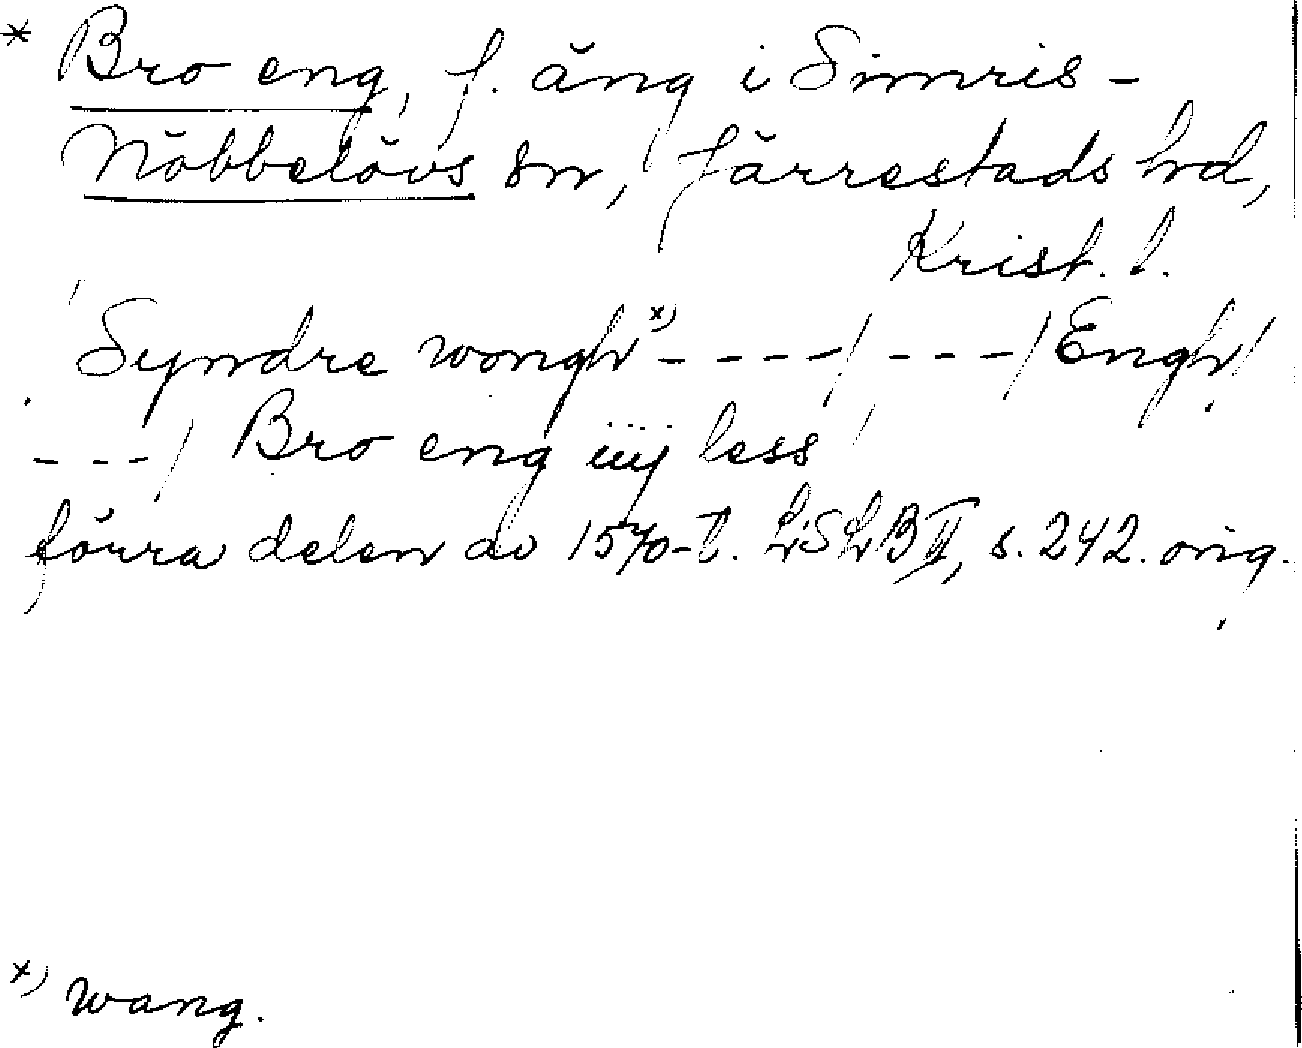 * Bro eng, f. äng i Simris-
Nöbbelövs sn, Järrestads hd,
Krist. l.
'Syndre wongh x) - - - - / - - - / Engh /
- - - / Bro eng iiij less'
förra delen av 1570-t. LSLB II, s. 242. orig.
x) wang.